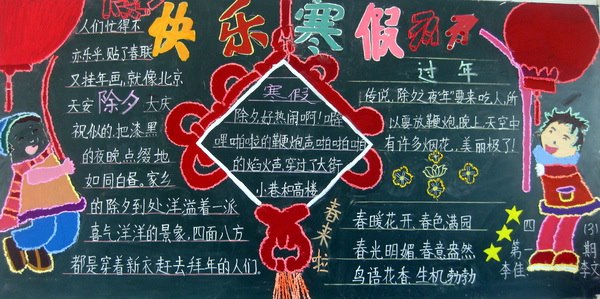 快乐寒假
人们忙得不
亦乐乎,贴了春联
又挂年画,就像北京
天安 除夕 大庆
祝似的.把漆黑
的夜晚点缀地
如同白昼.家乡
的除夕到处洋溢着一派
喜气洋洋的景象.四面八方
都是穿着新衣赶去拜年的人们.
寒假
除夕好热闹啊!噼
哩啪啦的鞭炮声啪啪啪
的焰火声.穿过了大街
小巷和高楼
春来啦
过年
传说,除夕夜年要来吃人,所
以要放鞭炮.晚上天空中
有许多烟花,美丽极了!
春暖花开、春色满园
春光明媚、春意盎然
鸟语花香、生机勃勃
四(3)
第一期
李佳 李文